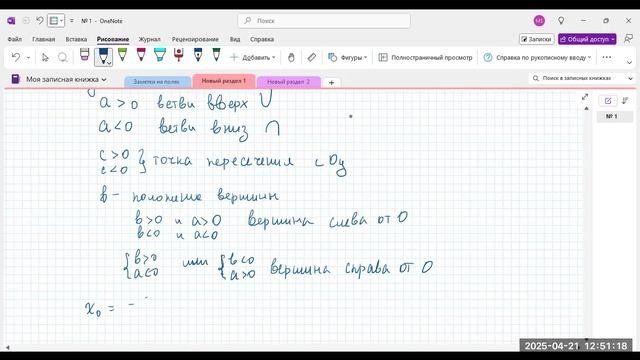 № 1 - OneNote
Поиск
MS
Файл Главная Вставка Рисование История Рецензирование Вид Справка
Записки
Общий доступ
Добавить
Фигуры
Полноэкранный просмотр
Справка по рукописному вводу
Моя записная книжка
Заметки на полях
Новый раздел 1
Новый раздел 2
Поиск в записных книжках
№ 1
a > 0 ветви вверх
a < 0 ветви вниз
c > 0
c < 0 } точка пересечения с Oy
b - положение вершины
b > 0 и a > 0 вершина слева от 0
b < 0 и a < 0
{ b > 0 или { b < 0
a < 0 a > 0 вершина справа от 0
x₀ = -
2025-04-21 12:51:18